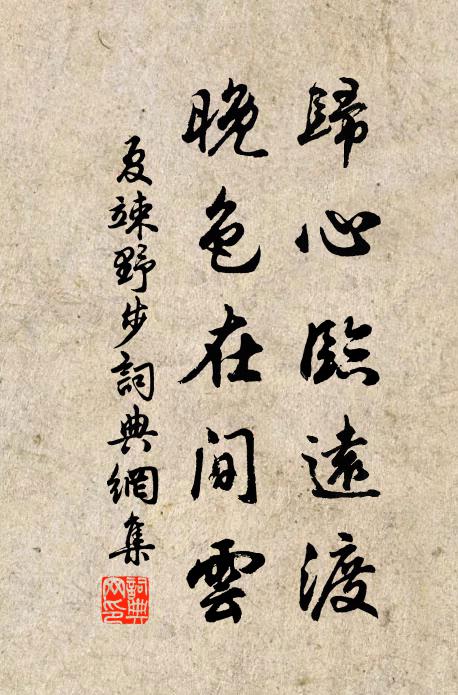 歸心臨遠渡
晚色在閒雲
夏竦野步詞典網集
詞典網印